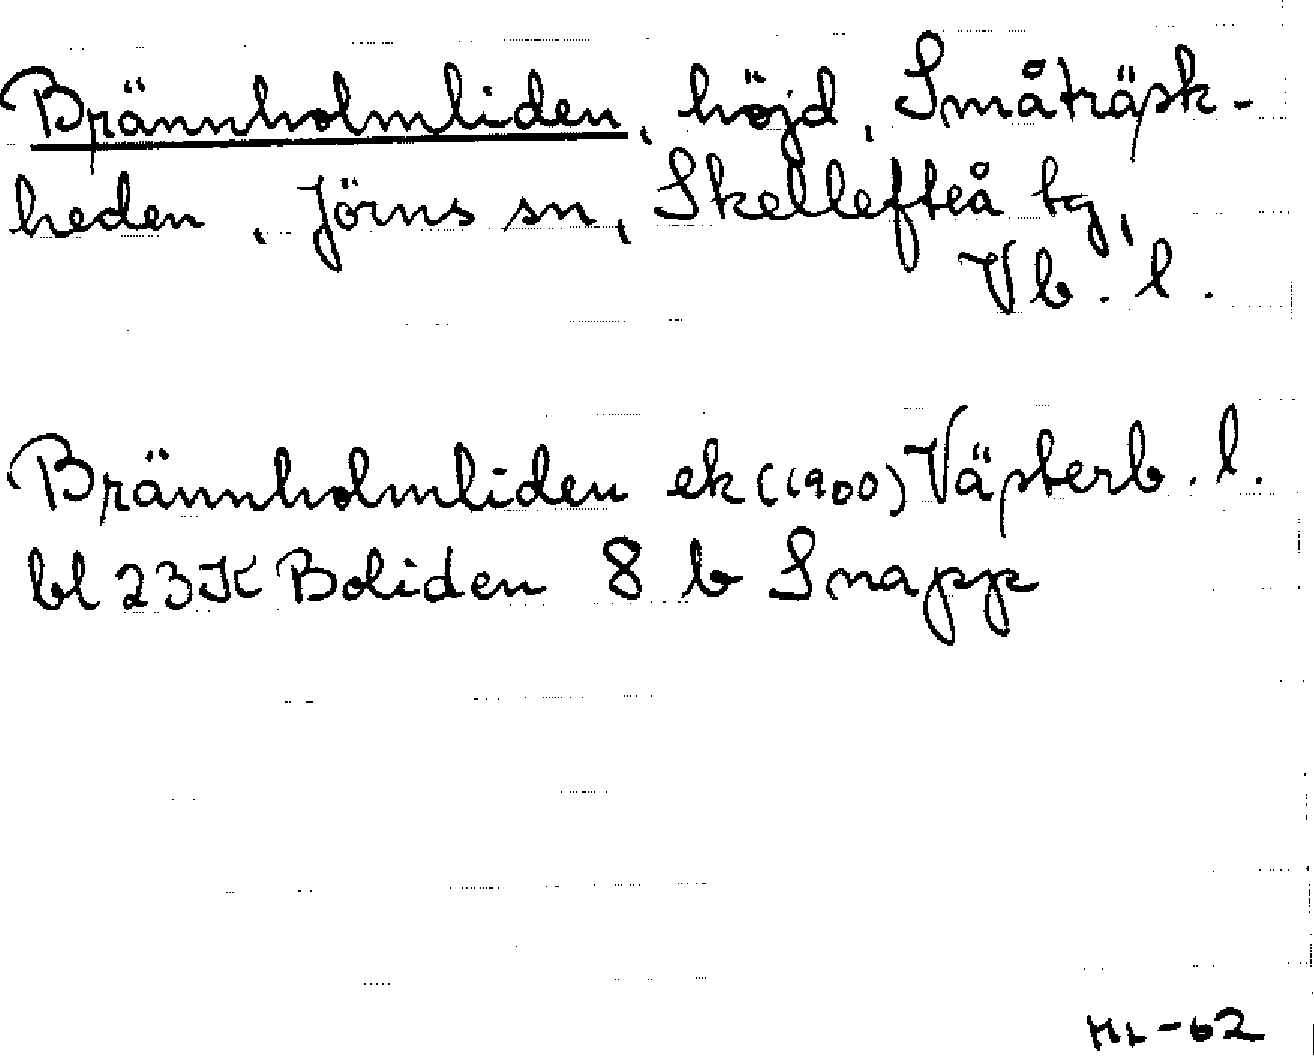 Brännholmliden, höjd, Småträsk-
heden, Jörns sn, Skellefteå tg,
Vb. l.
Brännholmliden ek (1900) Västerb. l.
bl 23K Boliden 8 b Snapp
ML-62